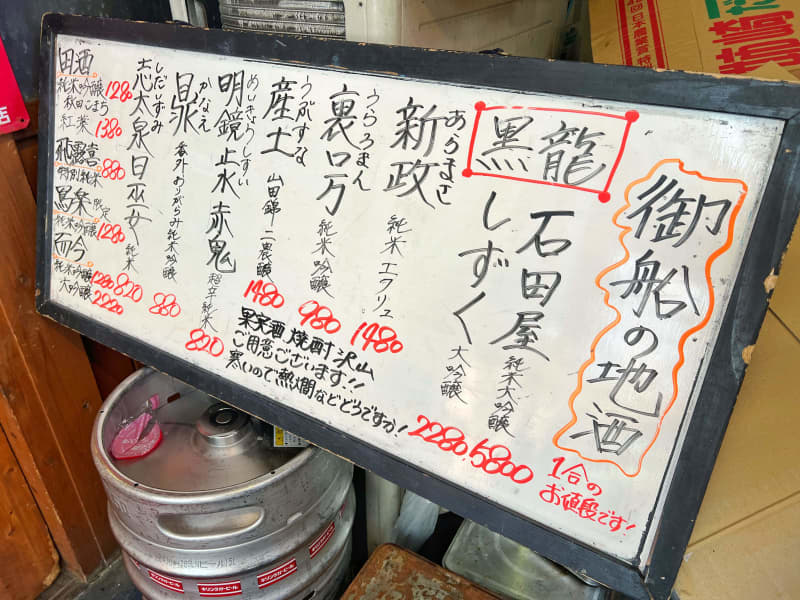 御船の地酒
1合の
お値段です!
黒龍
石田屋 純米大吟醸 5800
しずく 大吟醸 2280
あらまさ
新政 純米 エクリュ 1480
うらろまん
裏ロ万 純米吟醸 980
うぶすな
産土 山田錦 二農醸 1480
めいきょうしすい
明鏡止水 赤鬼 超辛純米 820
かなえ
鼎 番外おりがらみ純米吟醸 880
しだいずみ
志太泉 日巫女 純米 820
田酒
純米吟醸 1280
秋田こまち
紅葉 1380
飛露喜 880
特別純米
寫楽 限定
純米吟醸 1280
而今
純米吟醸 1280
大吟醸 2220
果実酒、焼酎 沢山
ご用意ございます!!
寒いので熱燗などどうですか!
キリンラガービール
キリンラガービール
キリンラガービール